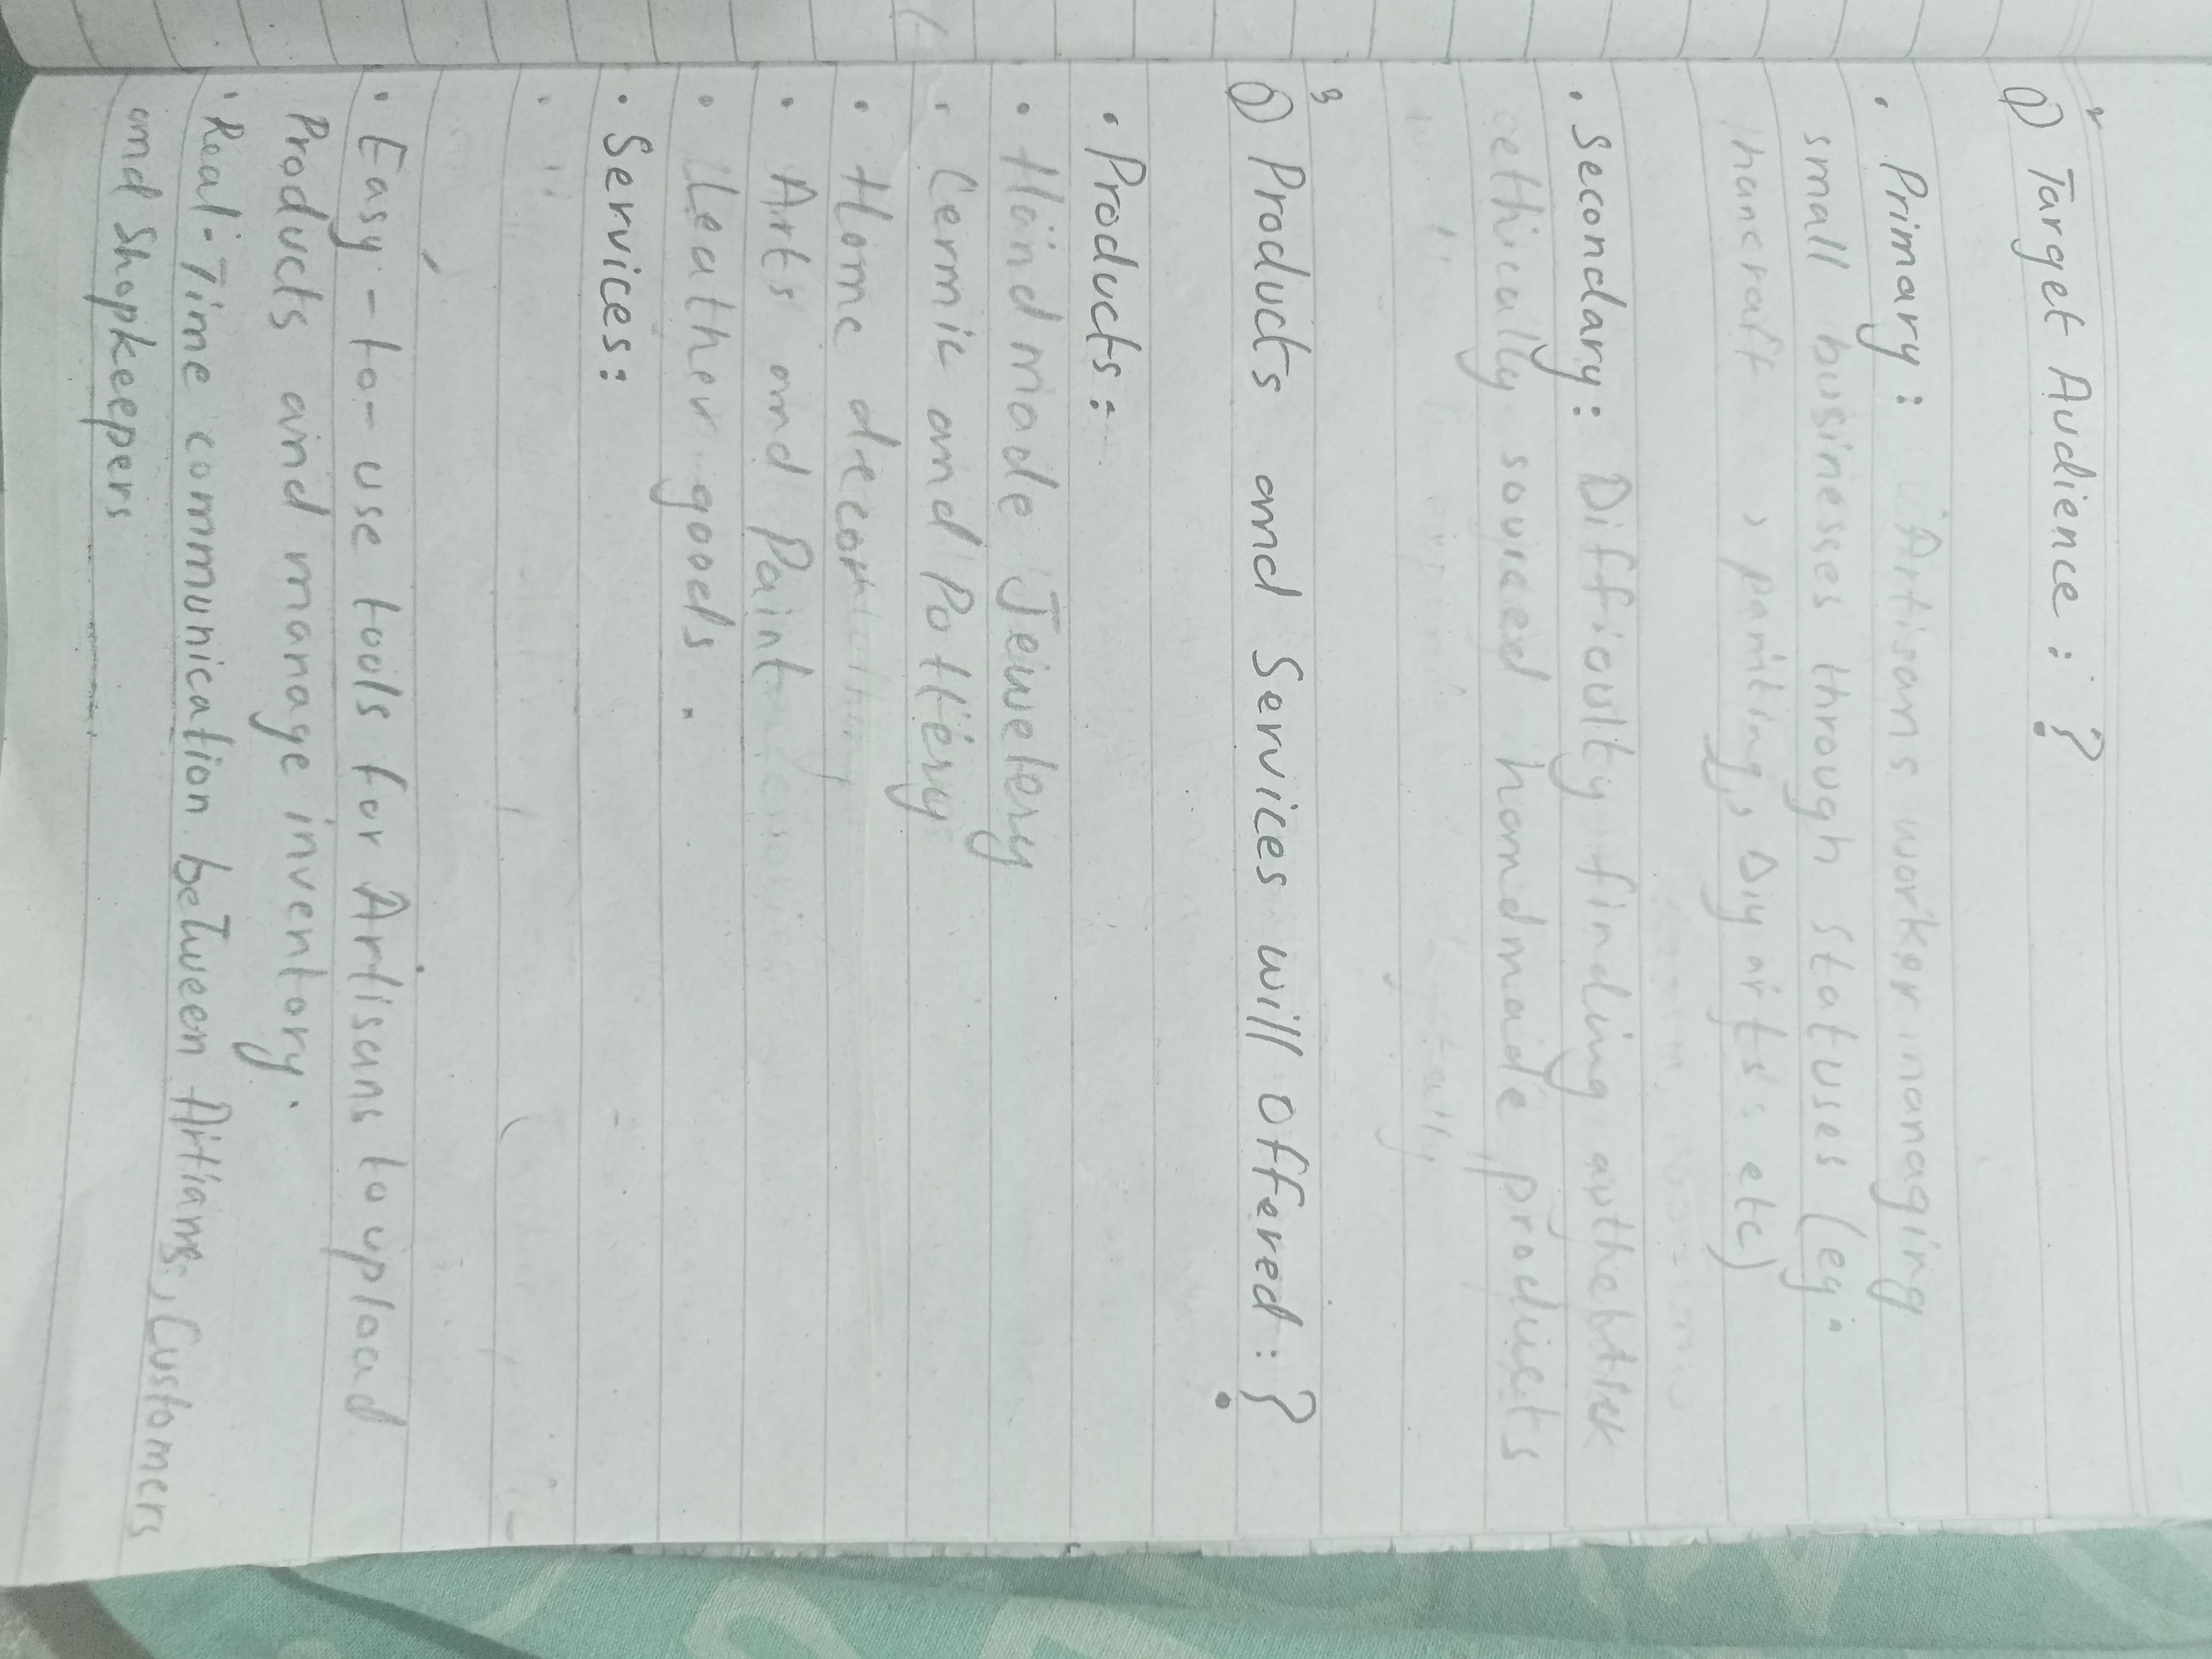 Q2 Target Audience : ?
• Primary : Artisans worker managing
small businesses through statuses (eg:
hancraft , painting, Diy arts: etc)
• Secondary : Difficulty finding authebtick
ethically sourced handmade products
Q3 Products and Services will Offered : ?
• Products :
• Handmade Jewelery
• Cermic and Pottery
• Home decor
• Arts and Paint
• Leather goods .
• Services :
• Easy - to - use tools for Artisans to upload
Products and manage inventory .
• Real - Time communication between Artians, Customers
and Shopkeepers